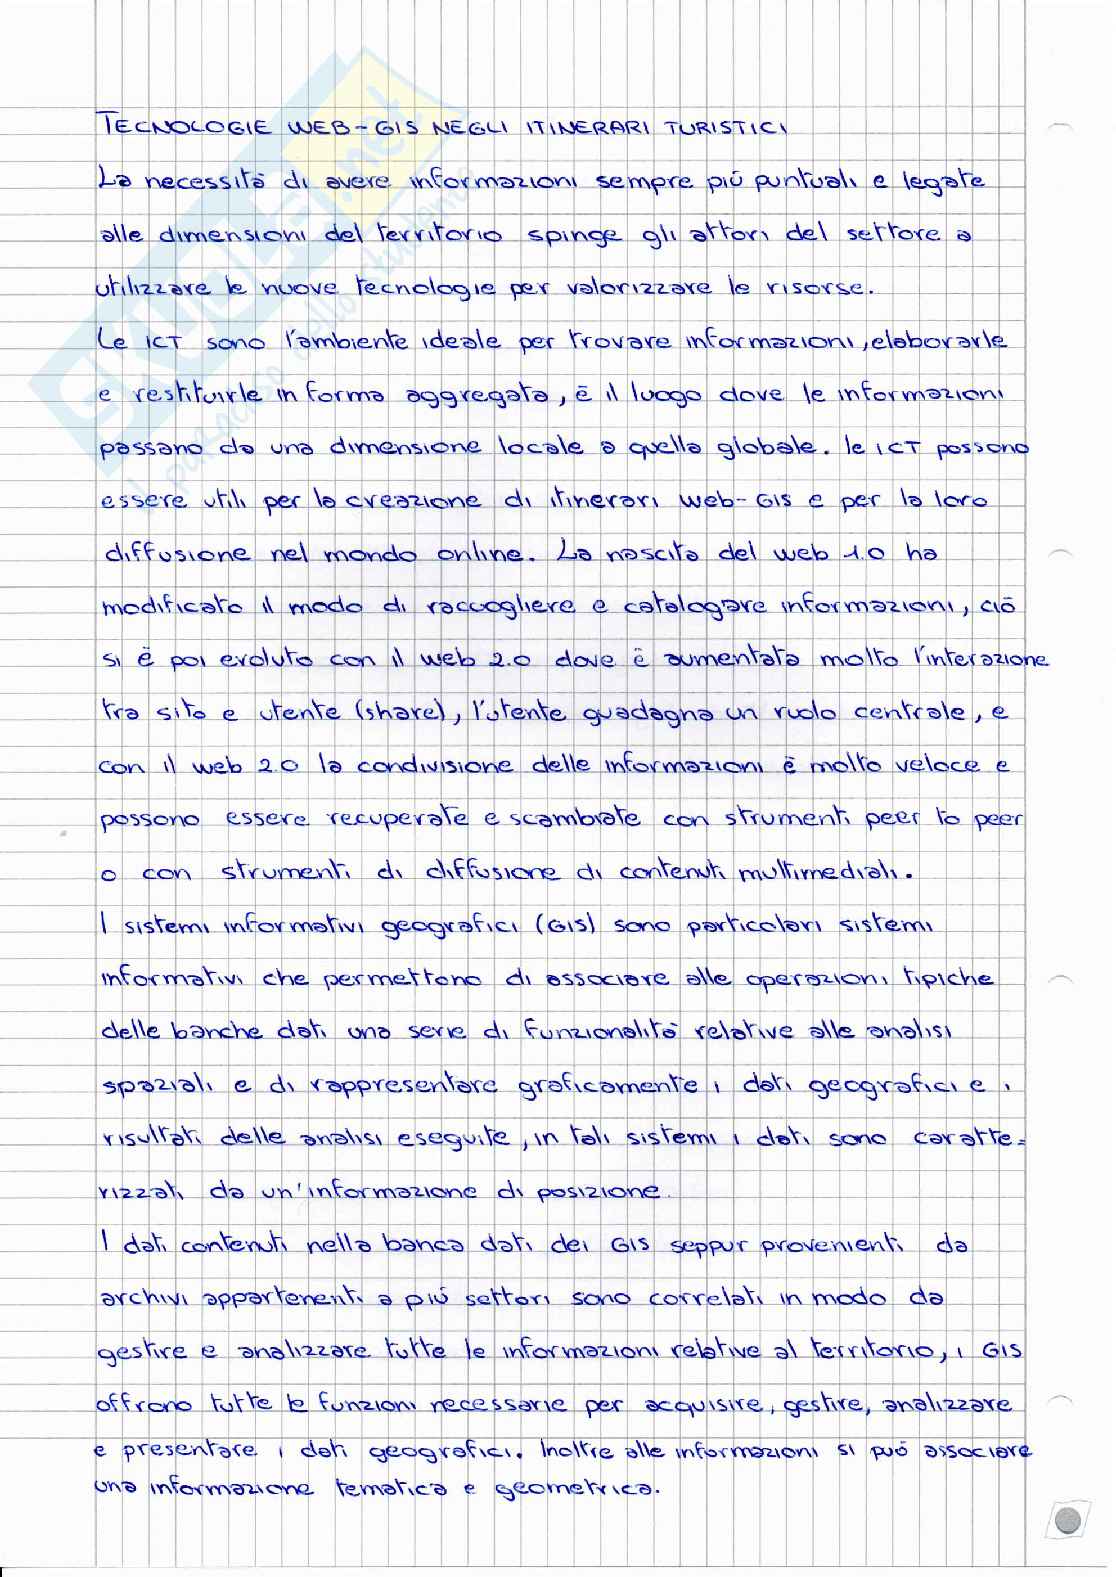 TECNOLOGIE WEB-GIS NEGLI ITINERARI TURISTICI
La necessità di avere informazioni sempre più puntuali e legate
alle dimensioni del territorio spinge gli attori del settore a
utilizzare le nuove tecnologie per valorizzare le risorse.
Le ICT sono l'ambiente ideale per trovare informazioni, elaborarle
e restituirle in forma aggregata, è il luogo dove le informazioni
passano da una dimensione locale a quella globale. le ICT possono
essere utili per la creazione di itinerari web-GIS e per la loro
diffusione nel mondo online. La nascita del web 1.0 ha
modificato il modo di raccogliere e catalogare informazioni, ciò
si è poi evoluto con il web 2.0 dove è aumentata molto l'interazione
tra sito e utente (share), l'utente guadagna un ruolo centrale, e
con il web 2.0 la condivisione delle informazioni è molto veloce e
possono essere recuperate e scambiate con strumenti peer to peer
o con strumenti di diffusione di contenuti multimediali.
I sistemi informativi geografici (GIS) sono particolari sistemi
informativi che permettono di associare alle operazioni tipiche
delle banche dati una serie di funzionalità relative alle analisi
spaziali e di rappresentare graficamente i dati geografici e i
risultati delle analisi eseguite, in tali sistemi i dati sono caratte=
rizzati da un'informazione di posizione.
I dati contenuti nella banca dati dei GIS seppur provenienti da
archivi appartenenti a più settori sono correlati in modo da
gestire e analizzare tutte le informazioni relative al territorio, i GIS
offrono tutte le funzioni necessarie per acquisire, gestire, analizzare
e presentare i dati geografici. Inoltre alle informazioni si può associare
una informazione tematica e geometrica.
SKUOLA.net
il paradiso dello studente